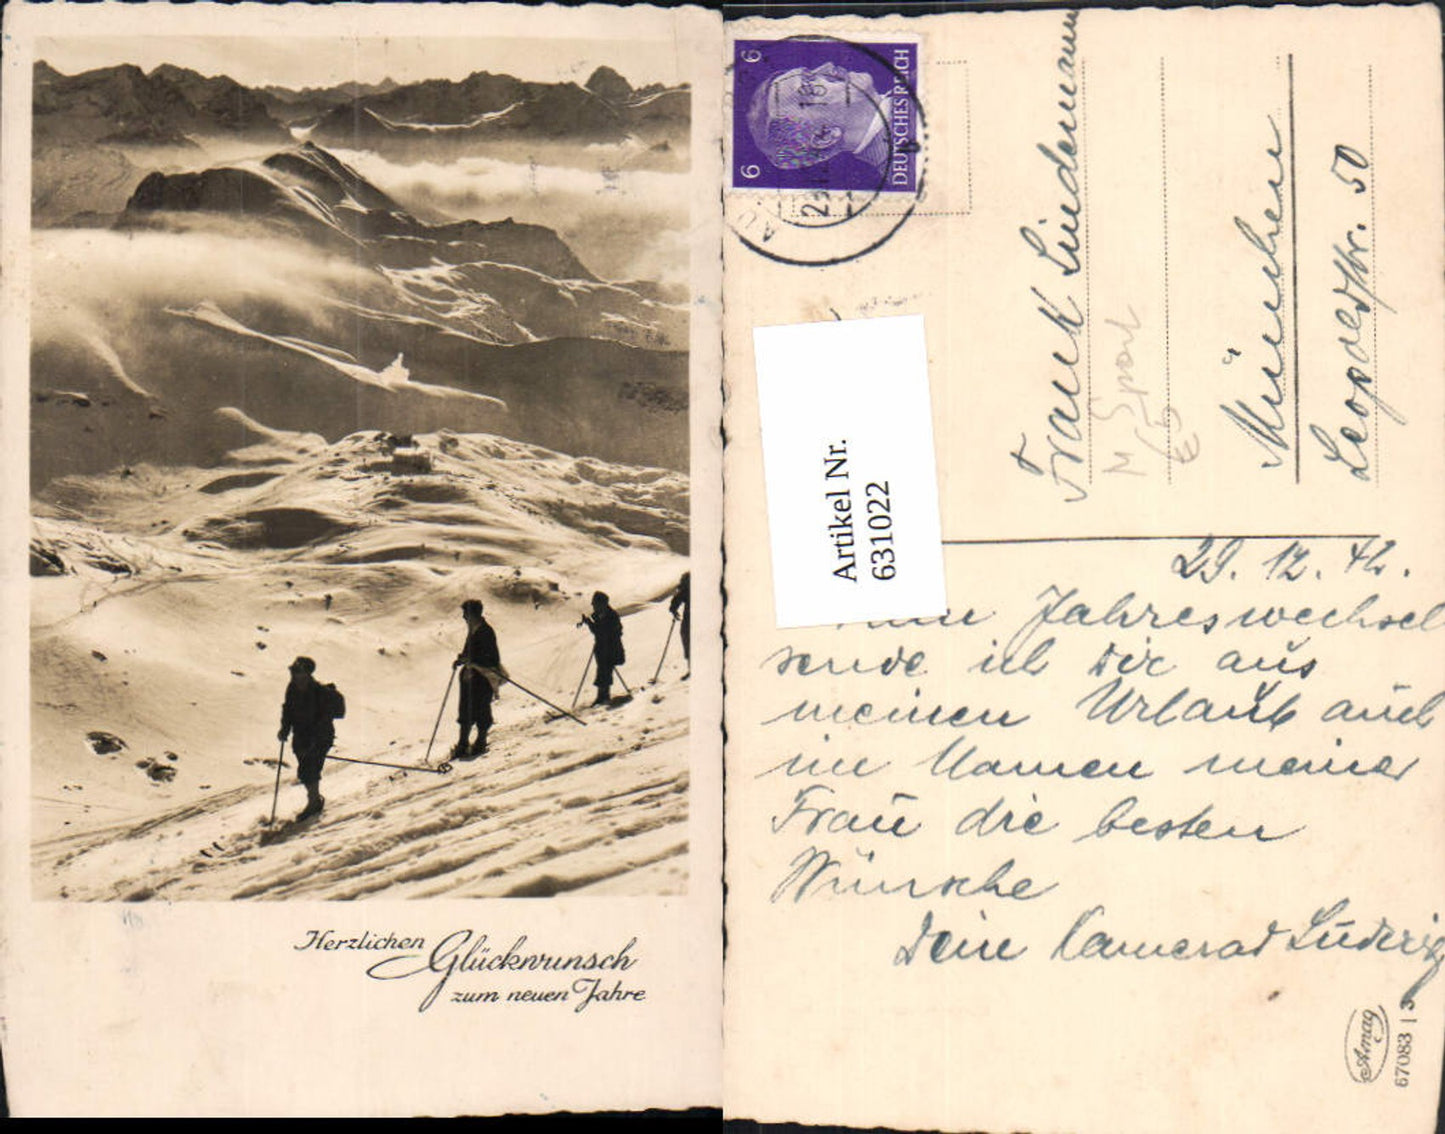 Herzlichen
Glückwunsch
zum neuen Jahre
6
6
DEUTSCHES REICH
Frank Lindemann
München
Leopoldstr. 50
M Sport
Artikel Nr.
631022
29. 12. 42.
Jahreswechsel
sende ich Dir aus
meinen Urlaub auch
im Namen meiner
Frau die besten
Wünsche
Dein Kamerad Ludwig
Amag
67083 | 3